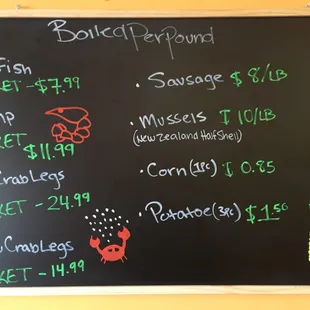 Boiled Per Pound
Fish
KET - $7.99
mp
KET
$11.99
Crab Legs
KET - 24.99
Crab Legs
KET - 14.99
· Sausage $8/LB
· Mussels $10/LB
(New Zealand Half Shell)
· Corn (1pc) $0.85
· Potatoe (3pc) $1.50